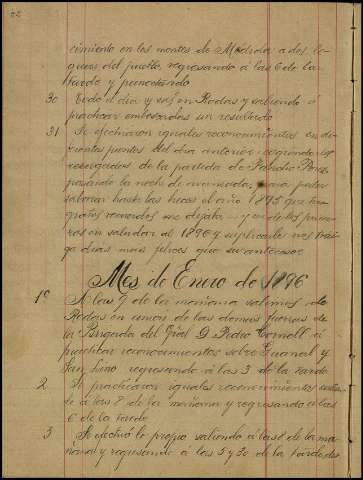 cimiento en los montes de Medidas a dos le-
guas del pueblo, regresando á las 6 de la
tarde y pernoctando
30 Todo el dia y en Rodas y saliendo á
practicar emboscadas sin resultado
31 Se efectuaron iguales reconocimientos en di-
ferentes puntos del dia anterior
rezagados de la partida de Perez
pasando la noche de para poder
saborear hasta las heces el año 1895 que tan
gratos recuerdos me dejata y de los prime-
ros en saludar al 1896 y suplicarle nos trai-
ga dias mas felices que su antecesor
Mes de Enero de 1896
1º A las 9 de la mañana salimos de
Rodas en union de las demás fuerzas de
la Brigada del Gral D. Pedro Cornell á
practicar reconocimientos sobre Guanal y
San Lino regresando á las 3 de la tarde
2 Se practicaron iguales reconocimientos
á las 8 de la mañana y regresando á las
6 de la tarde
3 Se efectuó lo propio saliendo á las 8 de la ma-
ñana y regresando á las 5 y 30 de la tarde